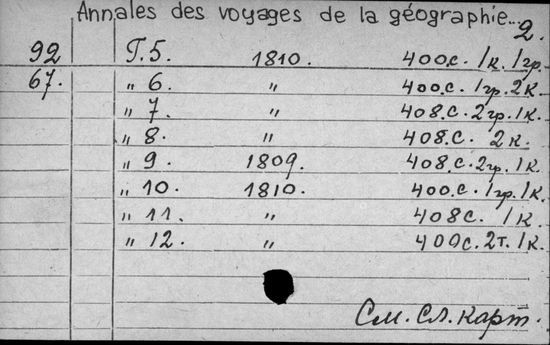 Annales des voyages de la géographie... 2.
92 Т.5. 1810. 400с. 1к. 1гр.
67. „ 6. „ 400.с. 1гр. 2к.
„ 7. „ 408.с. 2гр. 1к.
„ 8. „ 408.с. 2к.
„ 9. 1809. 408.с. 2гр. 1к.
„ 10. 1810. 400.с. 1гр. 1к.
„ 11. „ 408с. 1к.
„ 12. „ 400с. 2т. 1к.
См. сл. карт.